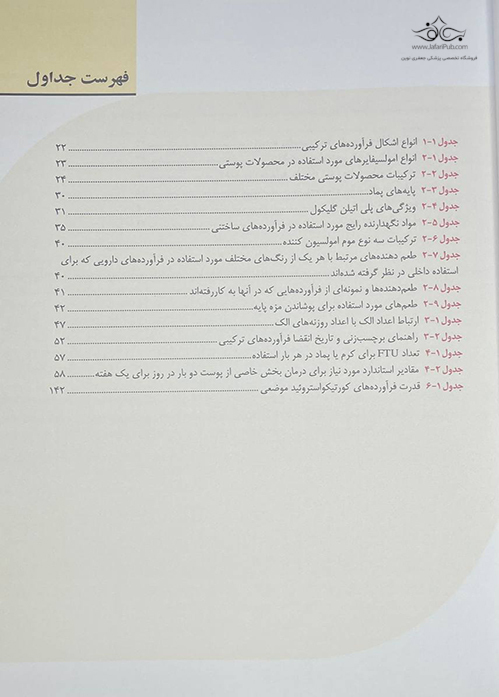 www.JafariPub.com
فروشگاه تخصصی پزشکی جعفری نوین
فهرست جداول
جدول ۱-۱ انواع اشکال فرآورده‌های ترکیبی ۲۲
جدول ۱-۲ انواع امولسیفایرهای مورد استفاده در محصولات پوستی ۲۳
جدول ۲-۲ ترکیبات محصولات پوستی مختلف ۲۴
جدول ۳-۲ پایه‌های پماد ۳۰
جدول ۴-۲ ویژگی‌های پلی اتیلن گلیکول ۳۱
جدول ۵-۲ مواد نگهدارنده رایج مورد استفاده در فرآورده‌های ساختنی ۳۵
جدول ۶-۲ ترکیبات سه نوع موم امولسیون کننده ۴۰
جدول ۷-۲ طعم دهنده‌های مرتبط با هر یک از رنگ‌های مختلف مورد استفاده در فرآورده‌های دارویی که برای
استفاده داخلی در نظر گرفته شده‌اند ۴۰
جدول ۸-۲ طعم‌دهنده‌ها و نمونه‌ای از فرآورده‌هایی که در آنها به کاررفته‌اند ۴۱
جدول ۹-۲ طعم‌های مورد استفاده برای پوشاندن مزه پایه ۴۲
جدول ۱-۳ ارتباط اعداد الک با اعداد روزنه‌های الک ۴۷
جدول ۲-۳ راهنمای برچسب‌زنی و تاریخ انقضا فرآورده‌های ترکیبی ۵۲
جدول ۱-۴ تعداد FTU برای کرم یا پماد در هر بار استفاده ۵۷
جدول ۲-۴ مقادیر استاندارد مورد نیاز برای درمان بخش خاصی از پوست دو بار در روز برای یک هفته ۵۸
جدول ۱-۶ قدرت فرآورده‌های کورتیکواستروئید موضعی ۱۴۲